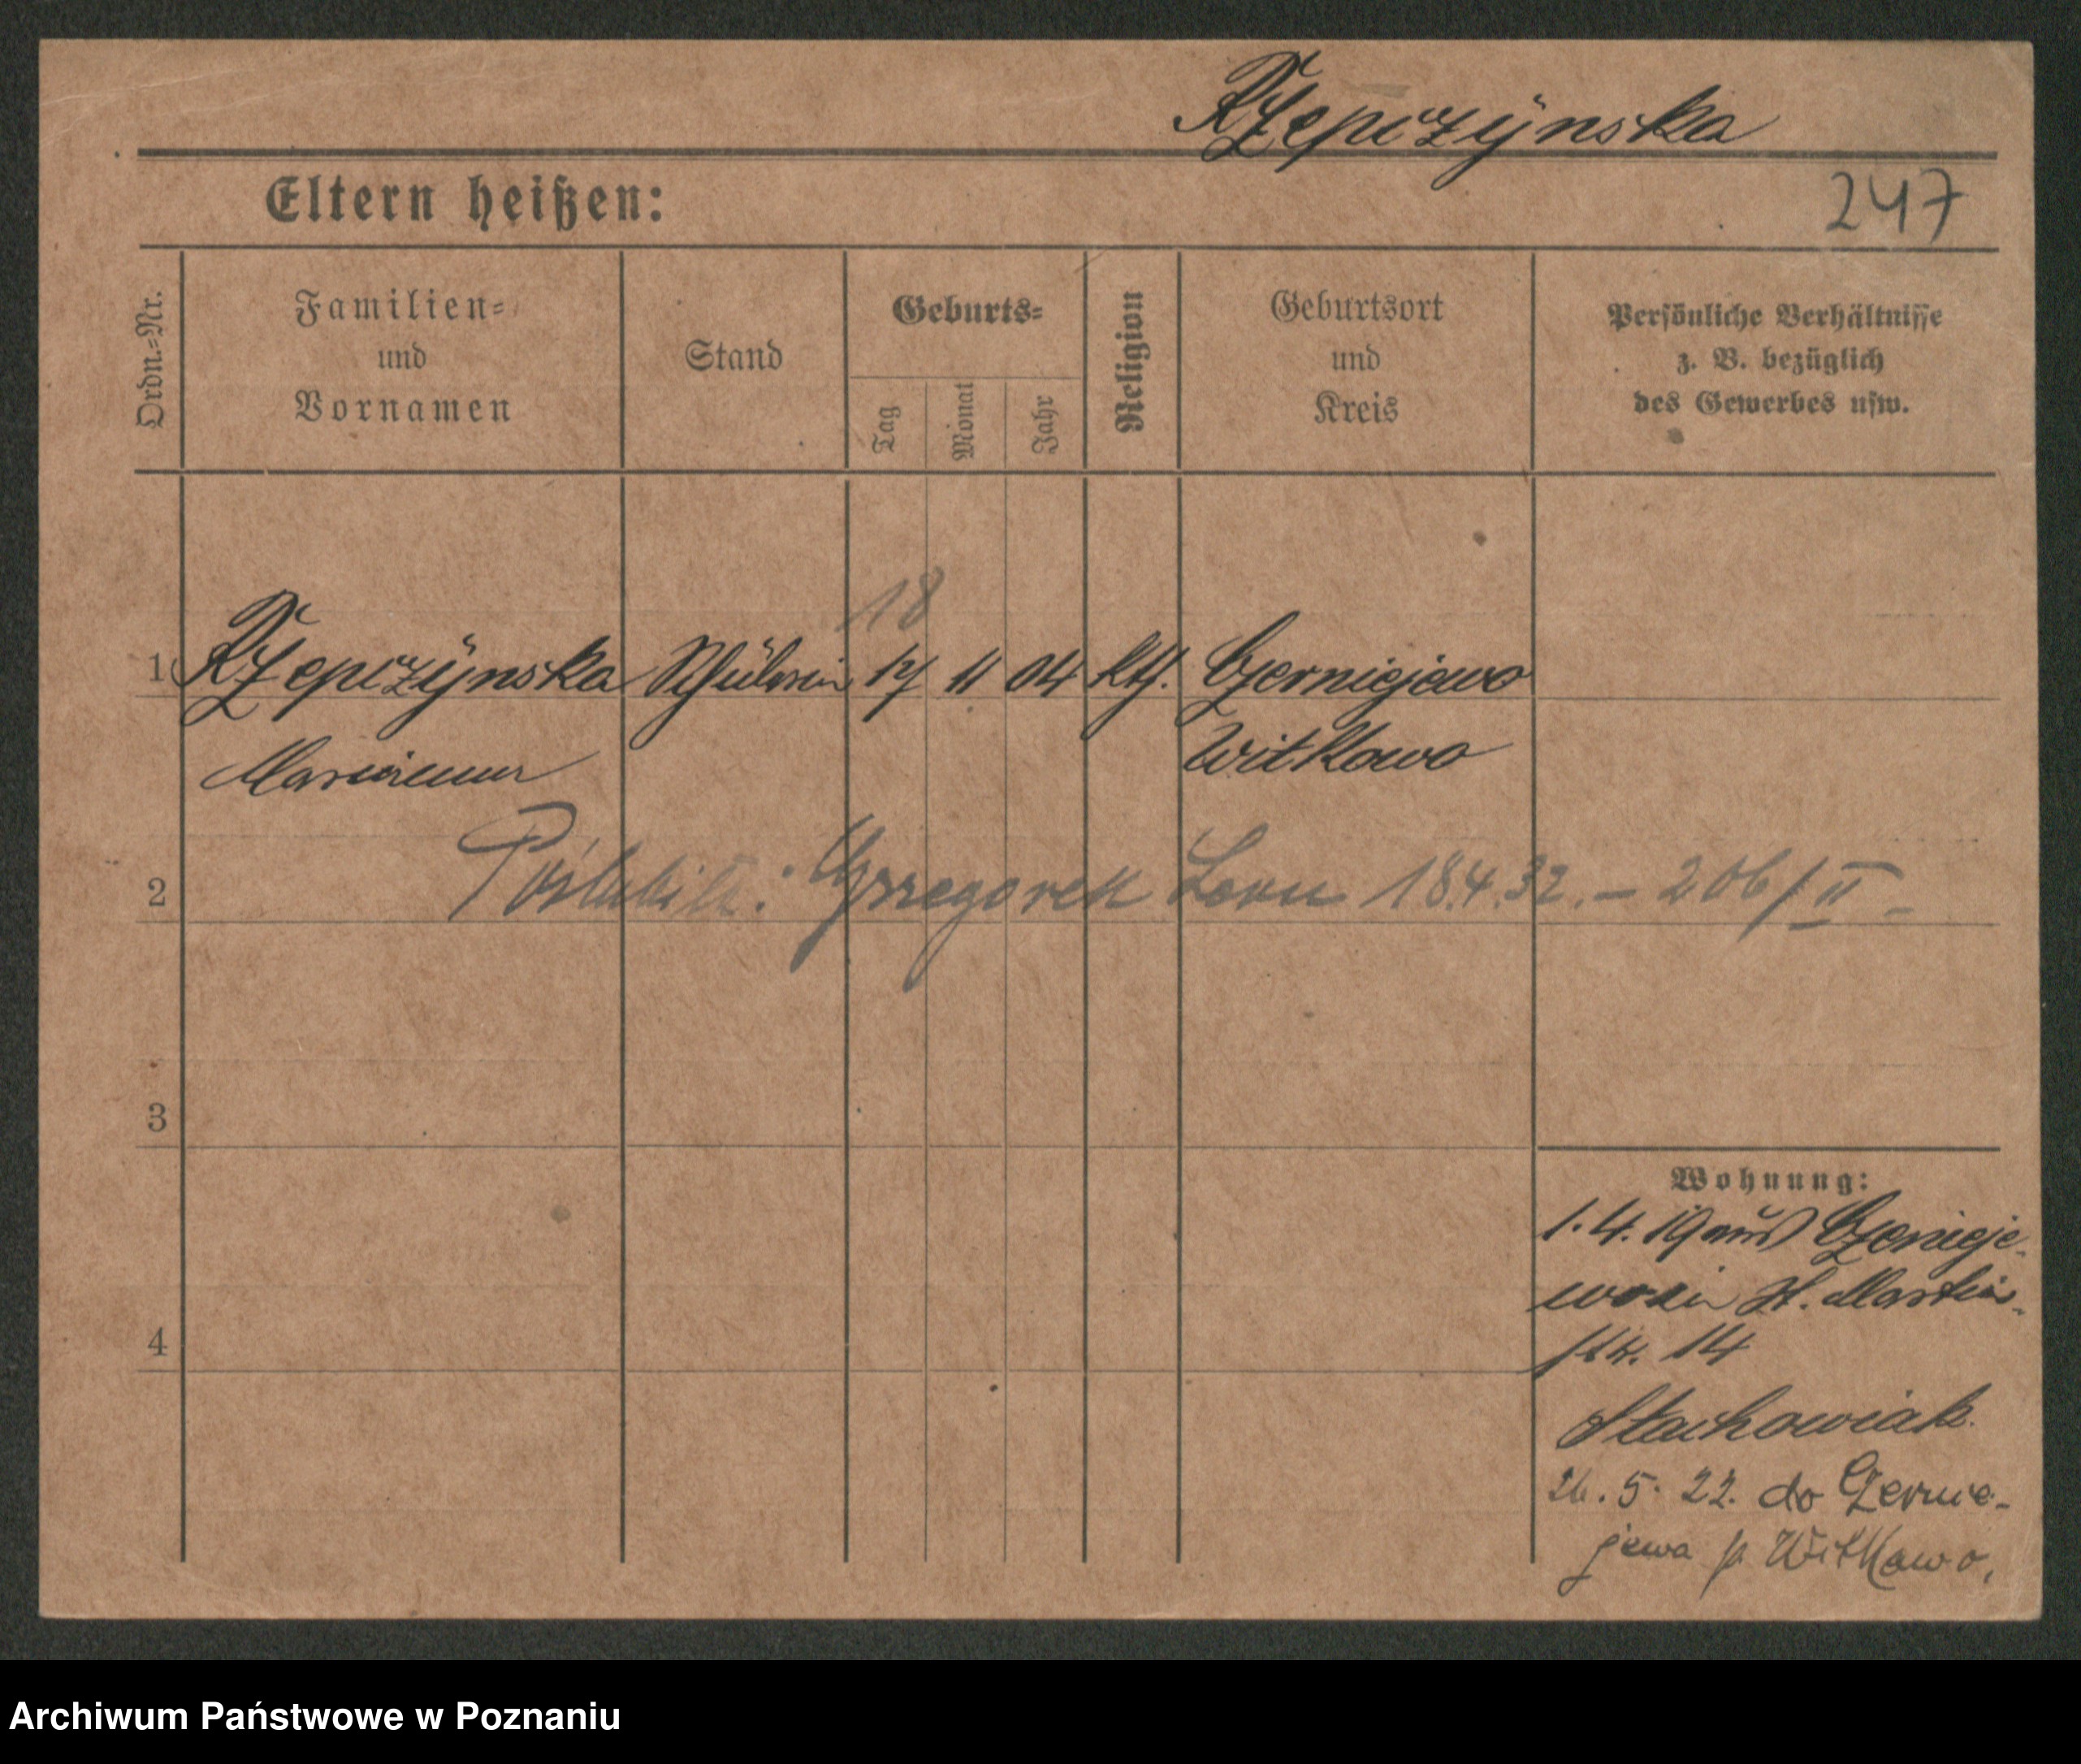 Rzepczÿnska
Eltern heißen:
247
Ordn.-Nr.
Familien-
und
Vornamen
Stand
Geburts-
Tag
Monat
Jahr
Religion
Geburtsort
und
Kreis
Persönliche Verhältnisse
z. B. bezüglich
des Gewerbes usw.
18
1 Rzepczÿnska Schülerin 17 11 04 kth. Czerniejewo
Marianna Witkowo
2 Poślubiła: Grzegorek Leon 18.4.32. – 206/II –
3
Wohnung:
1.4.19 aus Czernieje-
wo in St. Martin-
str. 14
4
Stachowiak.
26. 5. 22. do Czernie-
jewa p Witkowo,
Archiwum Państwowe w Poznaniu